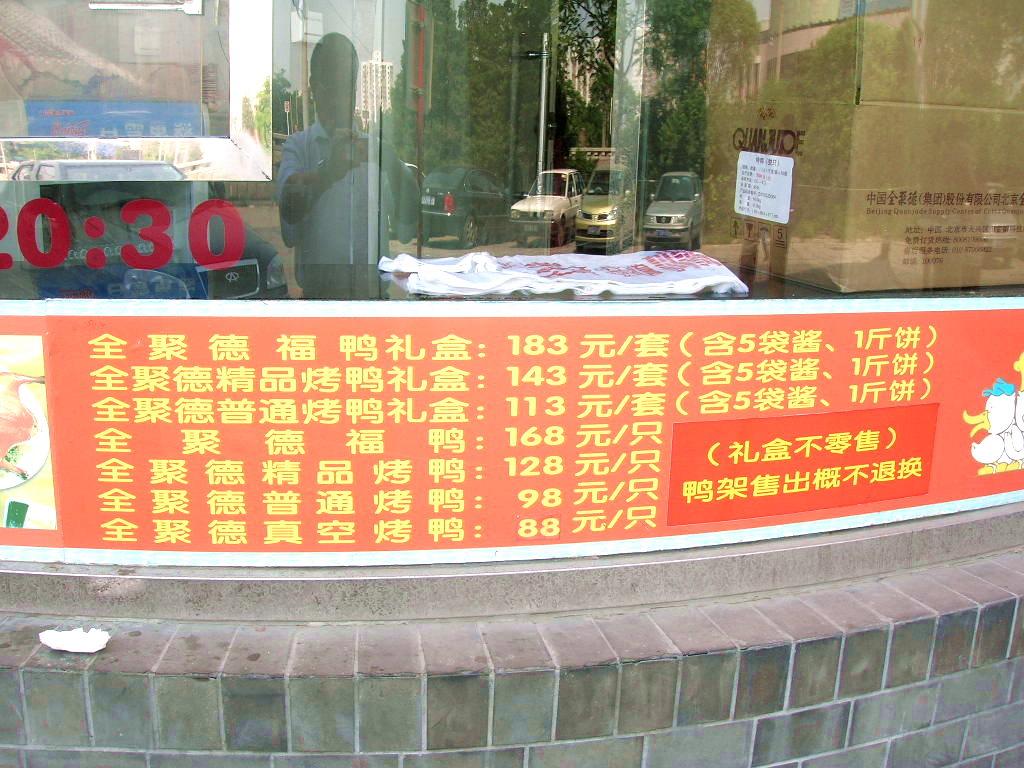 20:30
QUANJUDE
中国全聚德(集团)股份有限公司北京全
全聚德福鸭礼盒: 183 元/套(含5袋酱、1斤饼)
全聚德精品烤鸭礼盒: 143 元/套(含5袋酱、1斤饼)
全聚德普通烤鸭礼盒: 113 元/套(含5袋酱、1斤饼)
全聚德福鸭: 168 元/只
全聚德精品烤鸭: 128 元/只
全聚德普通烤鸭: 98 元/只
全聚德真空烤鸭: 88 元/只
(礼盒不零售)
鸭架售出概不退换